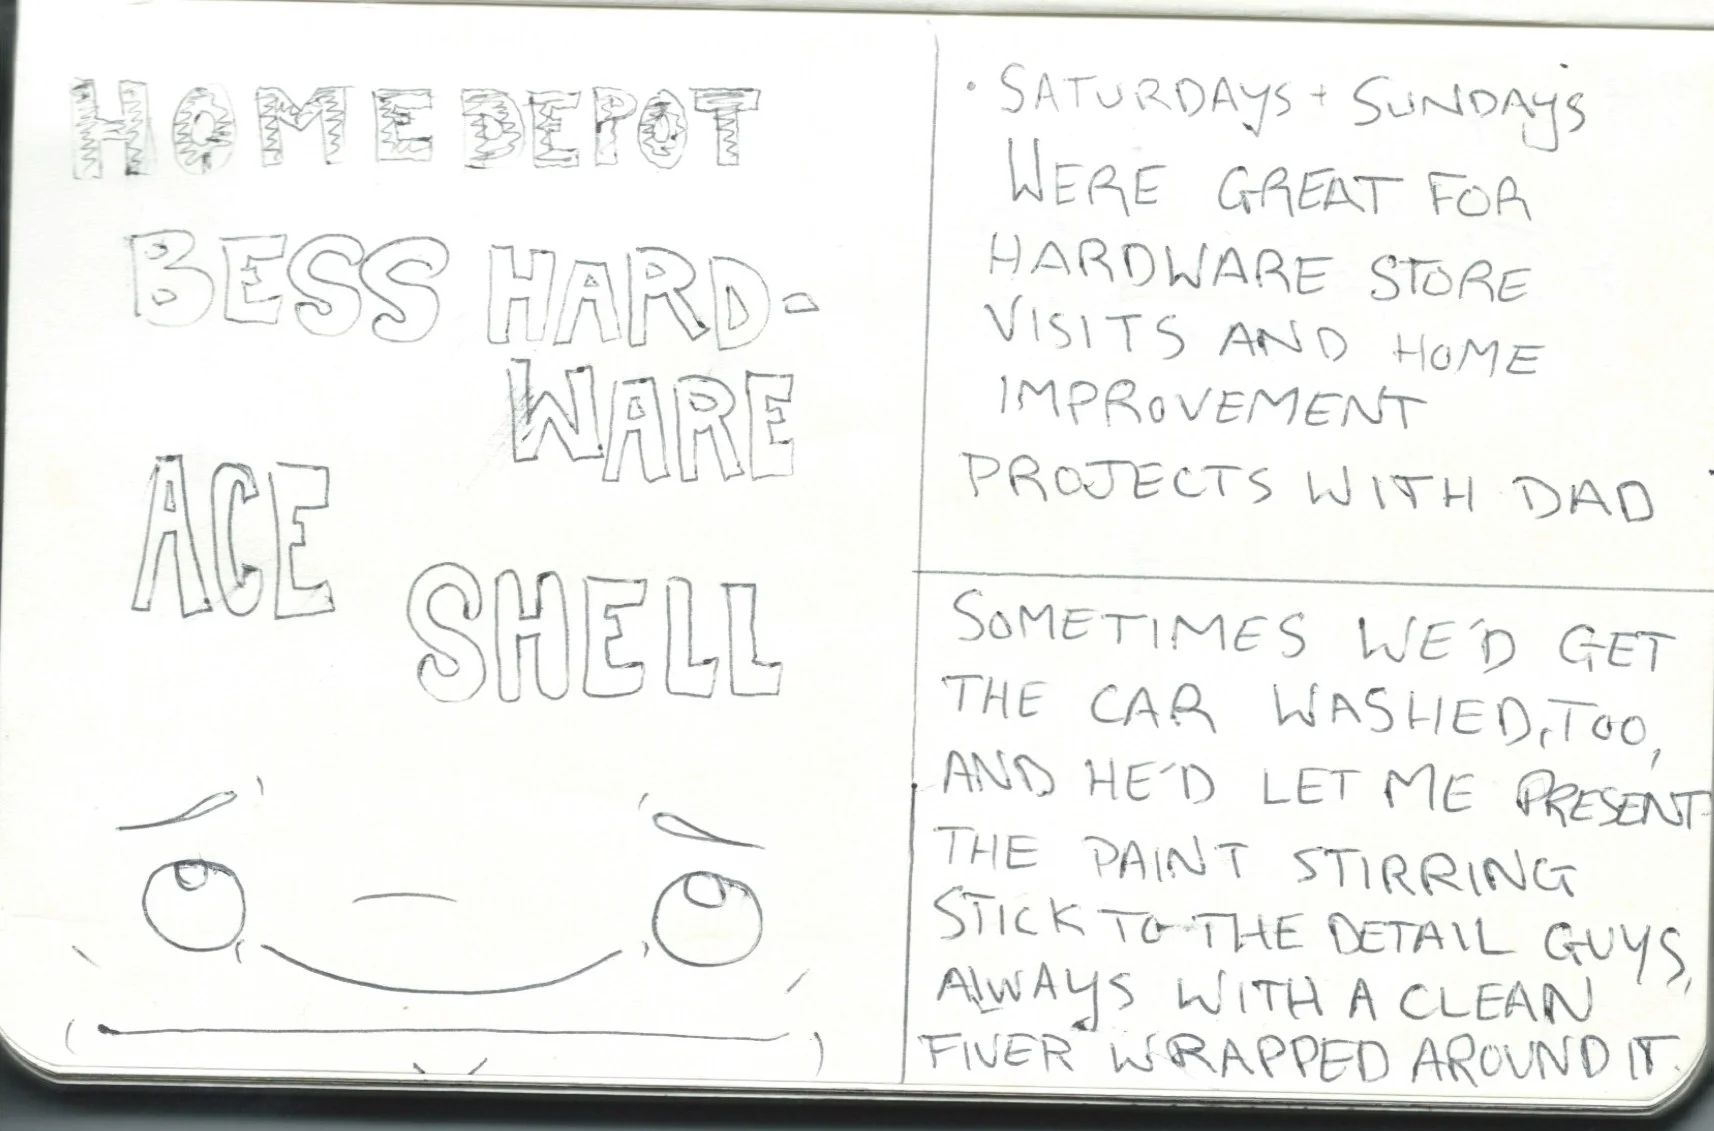 HOME DEPOT
BESS HARD-
WARE
ACE
SHELL
• SATURDAYS + SUNDAYS
WERE GREAT FOR
HARDWARE STORE
VISITS AND HOME
IMPROVEMENT
PROJECTS WITH DAD
SOMETIMES WE'D GET
THE CAR WASHED, TOO,
AND HE'D LET ME PRESENT
THE PAINT STIRRING
STICK TO THE DETAIL GUYS,
ALWAYS WITH A CLEAN
FIVER WRAPPED AROUND IT.